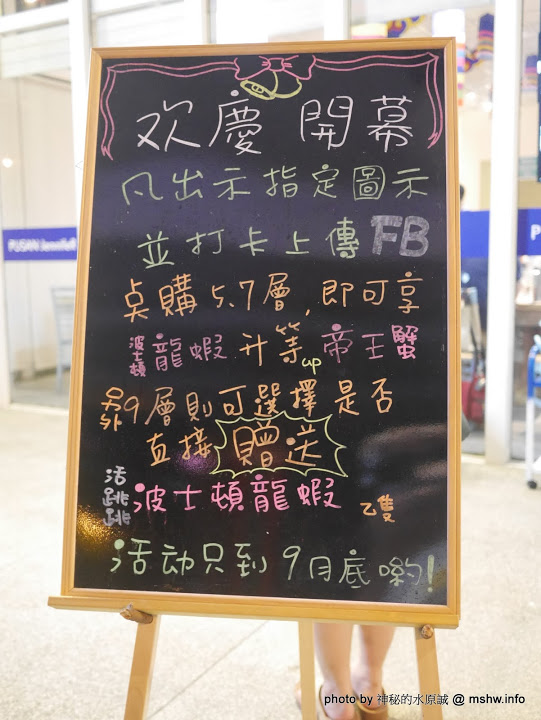 欢慶 開幕
凡出示指定圖示
並打卡上傳 FB
桌購 5.7層,即可享
波士頓龍蝦 升等up 帝王蟹
另外 9層則可選擇是否
直接 贈送
活跳跳 波士頓龍蝦 乙隻
活动只到 9月底喲!
PUSAN
P
photo by 神秘的水原誠 @ mshw.info